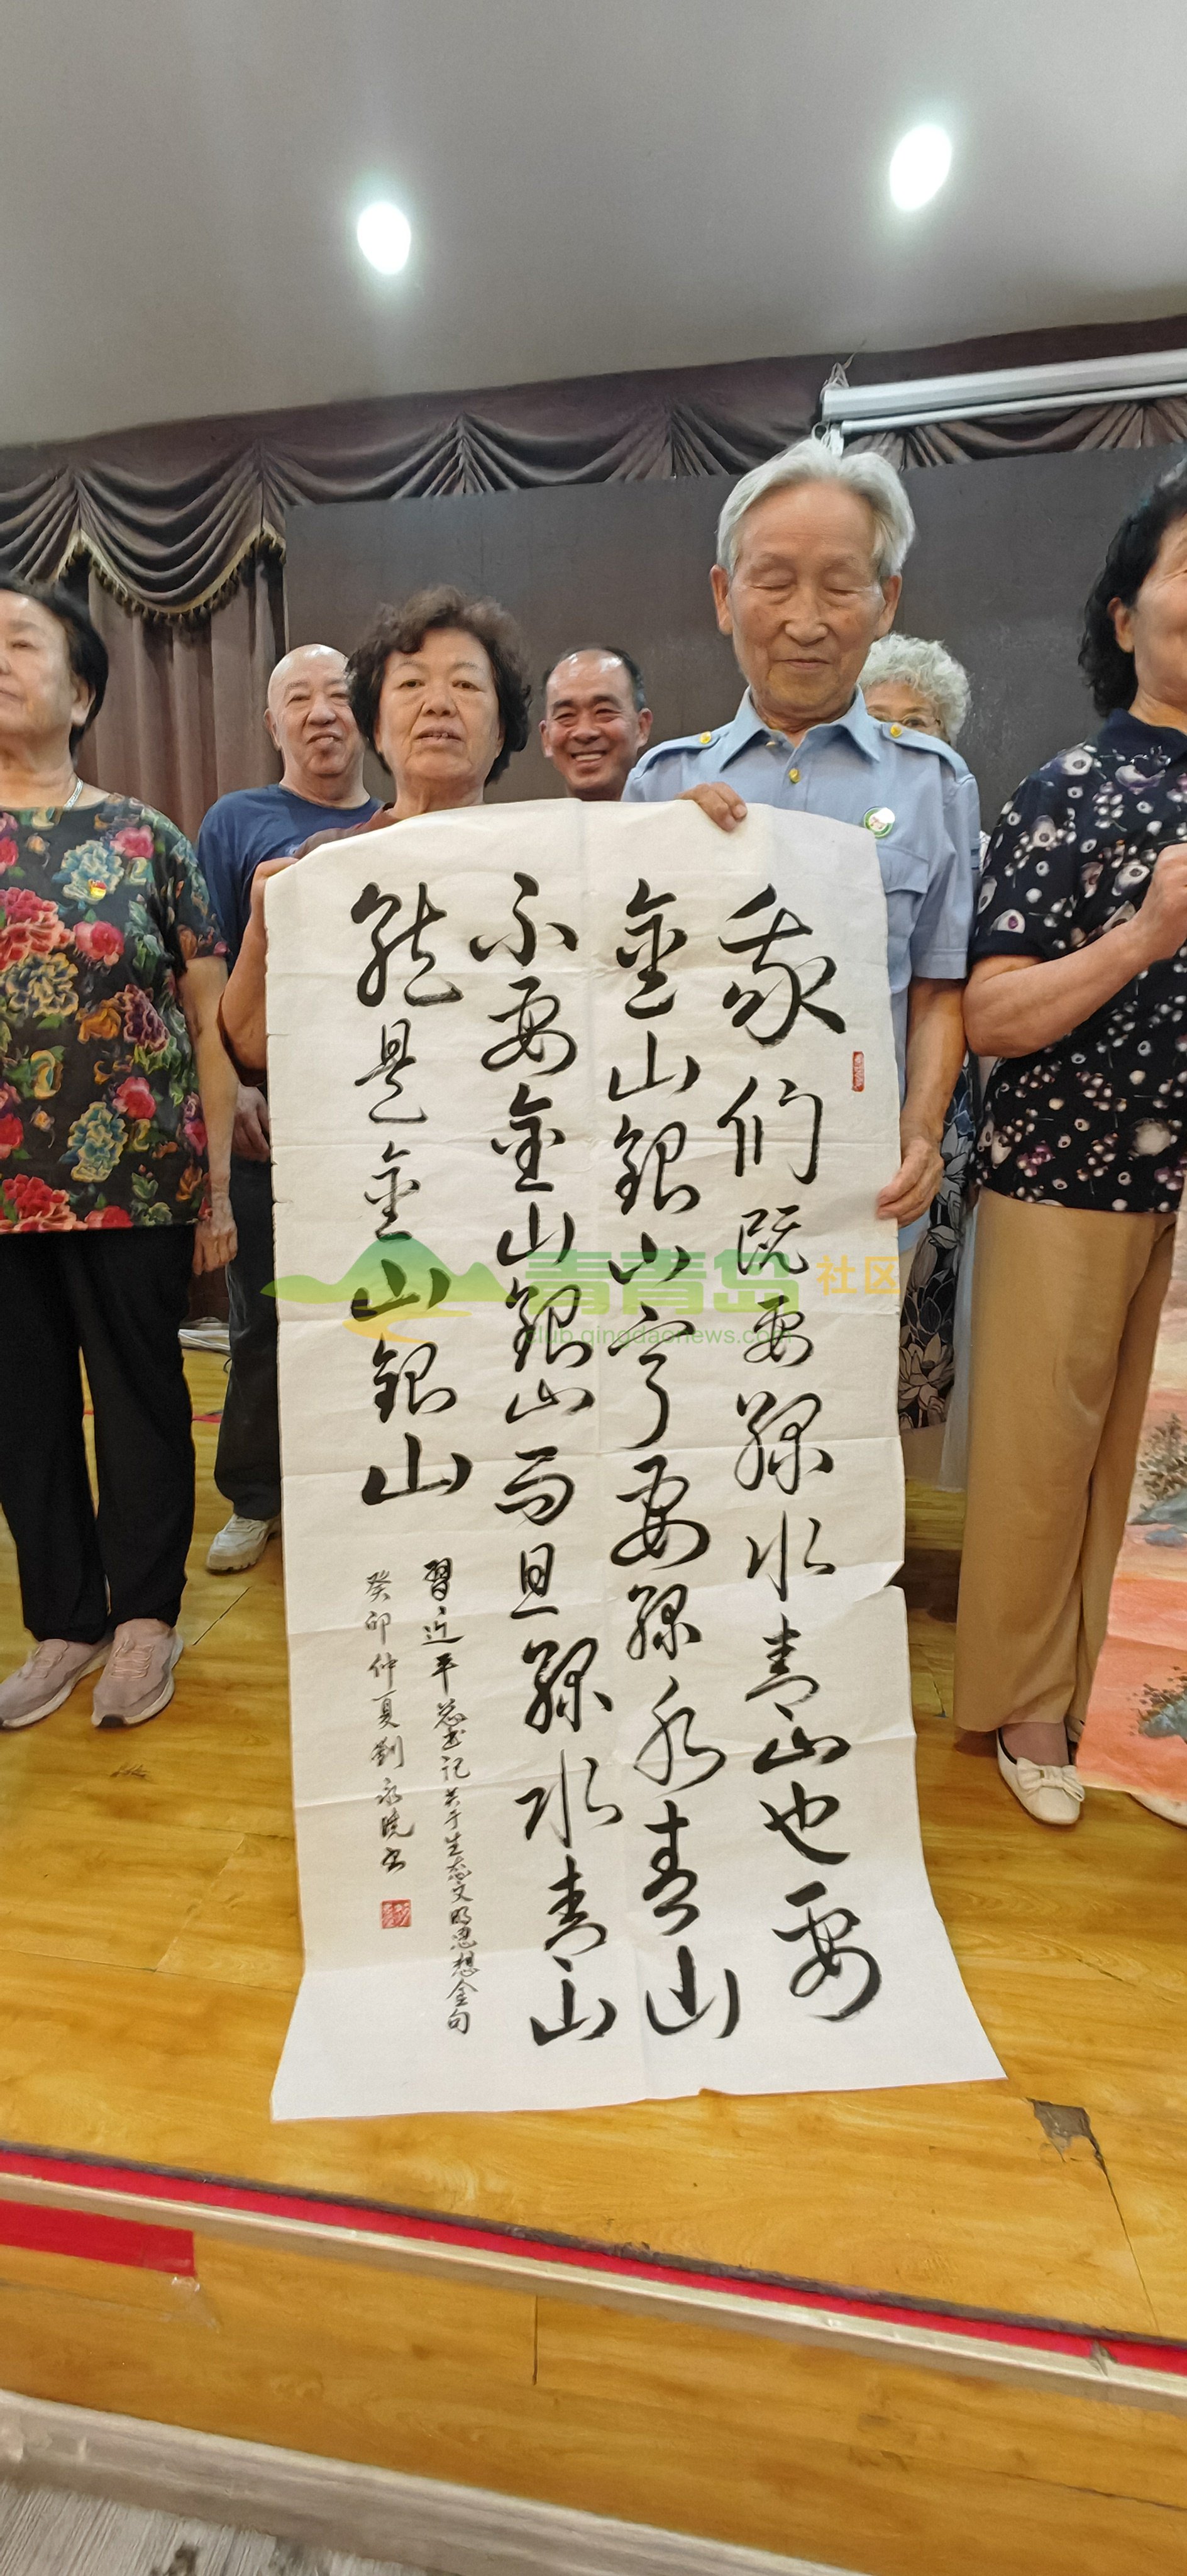 我们既要綠水青山也要
金山銀山宁要綠水青山
不要金山銀山而且綠水青山
就是金山銀山
習近平总书记关于生态文明思想金句
癸卯仲夏劉永书
青青岛社区
club.qingdaonews.com